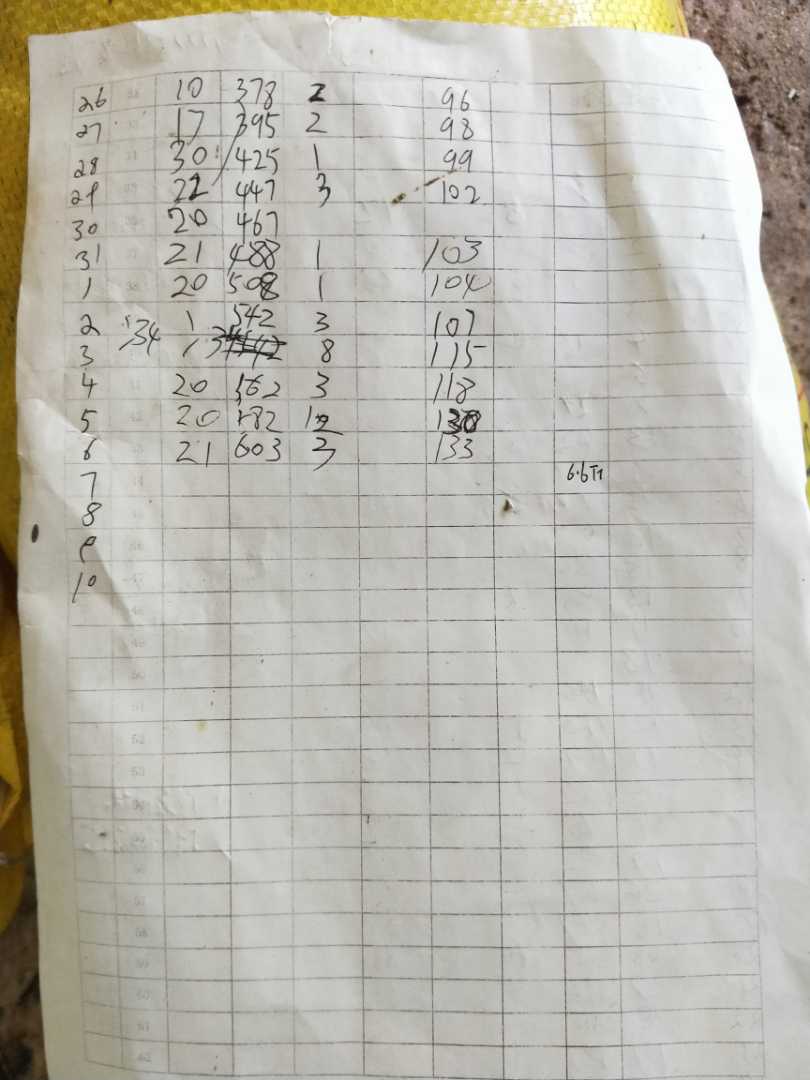 26 10 378 2 96
27 17 395 2 98
28 30 425 1 99
29 22 447 3 102
30 20 467
31 21 488 1 103
1 20 508 1 104
2 34 1 542 3 107
3 8 115
4 20 562 3 118
5 20 582 12 130
6 21 603 3 133
7 6.6
8
9
10